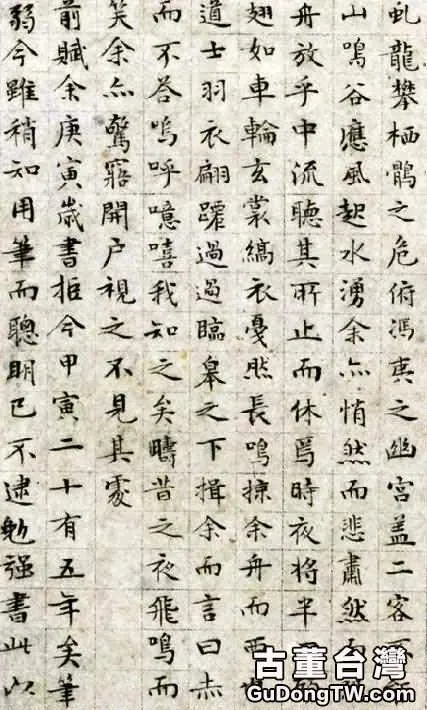 虬龍攀栖鶻之危俯馮夷之幽宮盖二客
山鳴谷應風起水湧余亦悄然而悲肅然
舟放乎中流聽其所止而休焉時夜將半
翅如車輪玄裳縞衣戛然長鳴掠余舟而西
道士羽衣翩躚過過臨皋之下揖余而言曰赤
而不答嗚呼噫嘻我知之矣疇昔之夜飛鳴而
笑余亦驚寤開户視之不見其處
前賦余庚寅歲書拒今甲寅二十有五年矣筆
弱今雖稍知用筆而聰明已不逮勉强書此以
古董台灣
GuDongTW.com